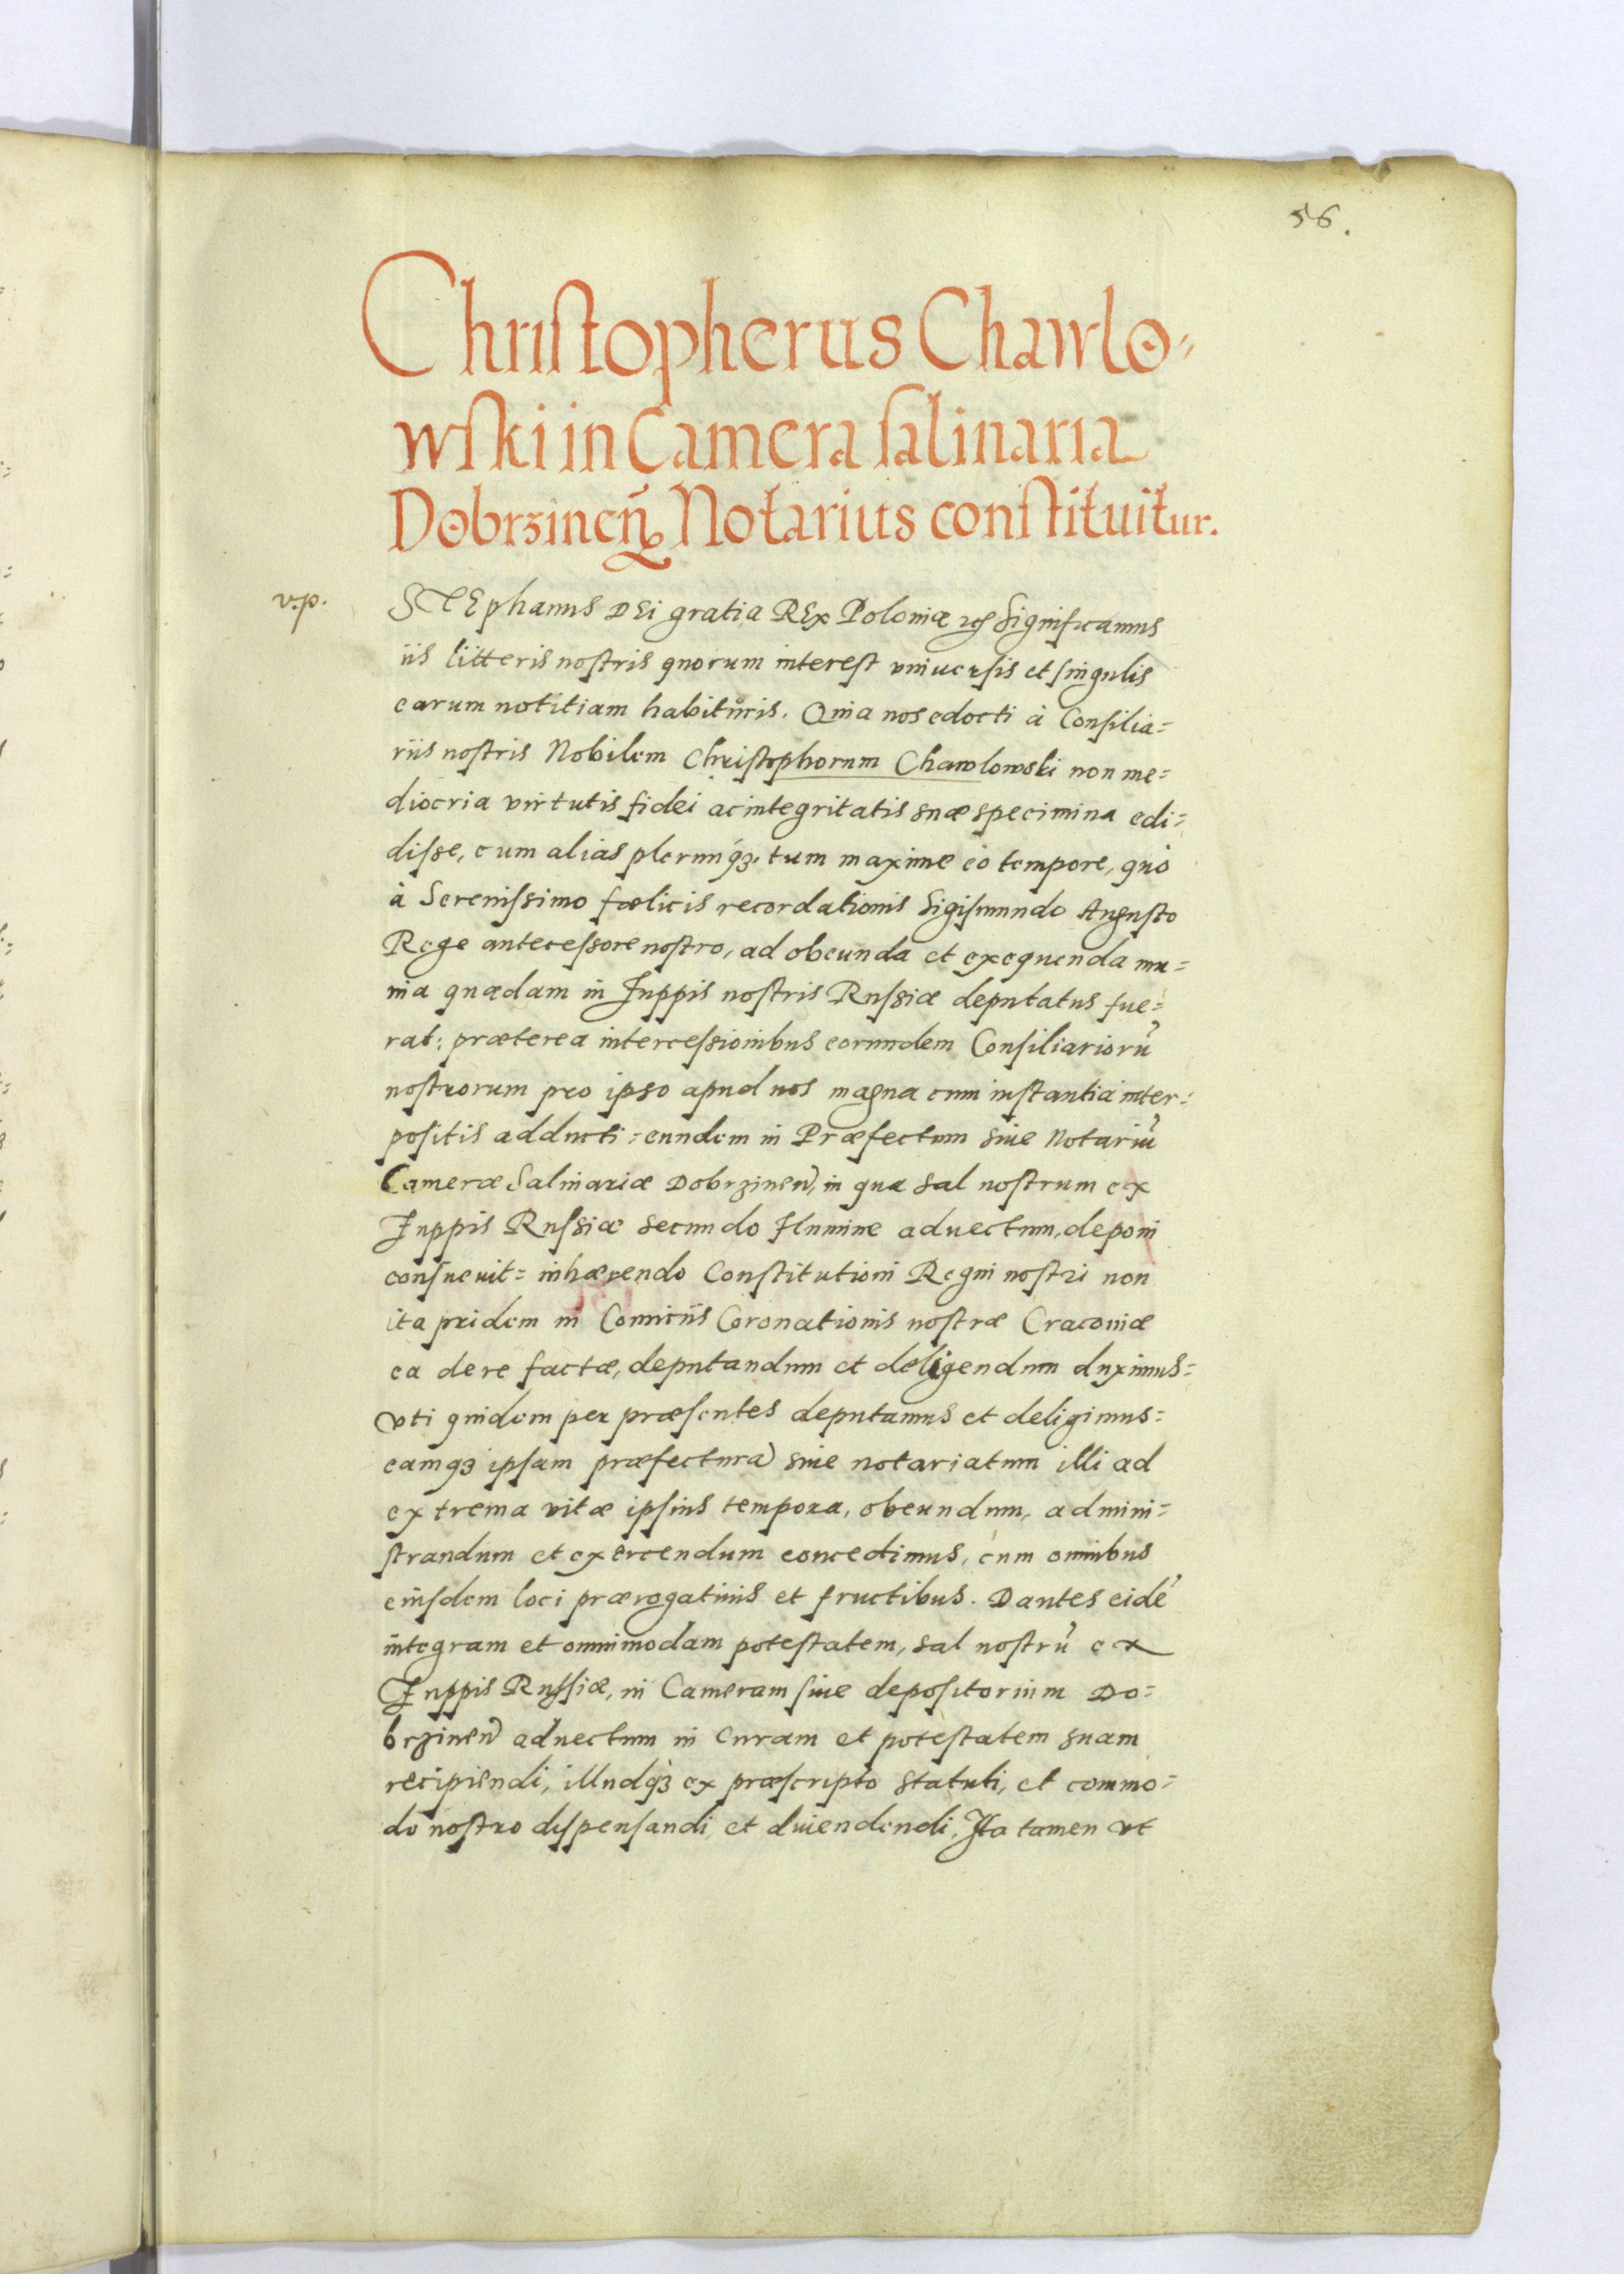 56.
Christopherus Chawlo=
wski in Camera salinaria
Dobrzineñ Notarius constituitur.
v.p.
STEphanus DEi gratia REx Poloniæ etc Significamus
iis litteris nostris quorum interest vniuersis et singulis
earum notitiam habituris. Quia nos edocti à Consilia=
riis nostris Nobilem Christophorum Chawlowski non me=
diocria virtutis fidei ac integritatis suæ specimina edi=
disse, cum aliàs plerunq́ꝫ, tum maxime eò tempore, quò
à Serenissimo fœlicis recordationis Sigismundo Augusto
Rege antecessore nostro, ad obeunda et exequenda mu=
nia quædam in Juppis nostris Russiæ deputatus fue=
rat: præterea intercessionibus eorundem Consiliariorũ
nostrorum pro ipso apud nos magna cum instantia inter=
positis adducti = eundem in Præfectum siue Notariũ
Cameræ Salinariæ Dobrzineñ, in qua sal nostrum ex
Juppis Russiæ secundo flumine aduectum, deponi
consueuit = inhærendo Constitutioni Regni nostri non
ita pridem in Comitiis Coronationis nostræ Cracouiæ
ea de re factæ, deputandum et deligendum duximus =
vti quidem per præsentes deputamus et deligimus =
eamqꝫ ipsam præfecturã siue notariatum illi ad
extrema vitæ ipsius tempora, obeundum, admini=
strandum et exercendum concedimus, cum omnibus
eiusdem loci prærogatiuis et fructibus. Dantes eidẽ
integram et omnimodam potestatem, sal nostrũ ex
Juppis Russiæ, in Cameram siue depositorium Do=
brzineñ aduectum in curam et potestatem suam
recipiendi, illudq́ꝫ ex præscripto statuti, et commo=
do nostro dispensandi et diuendendi. Ita tamen vt